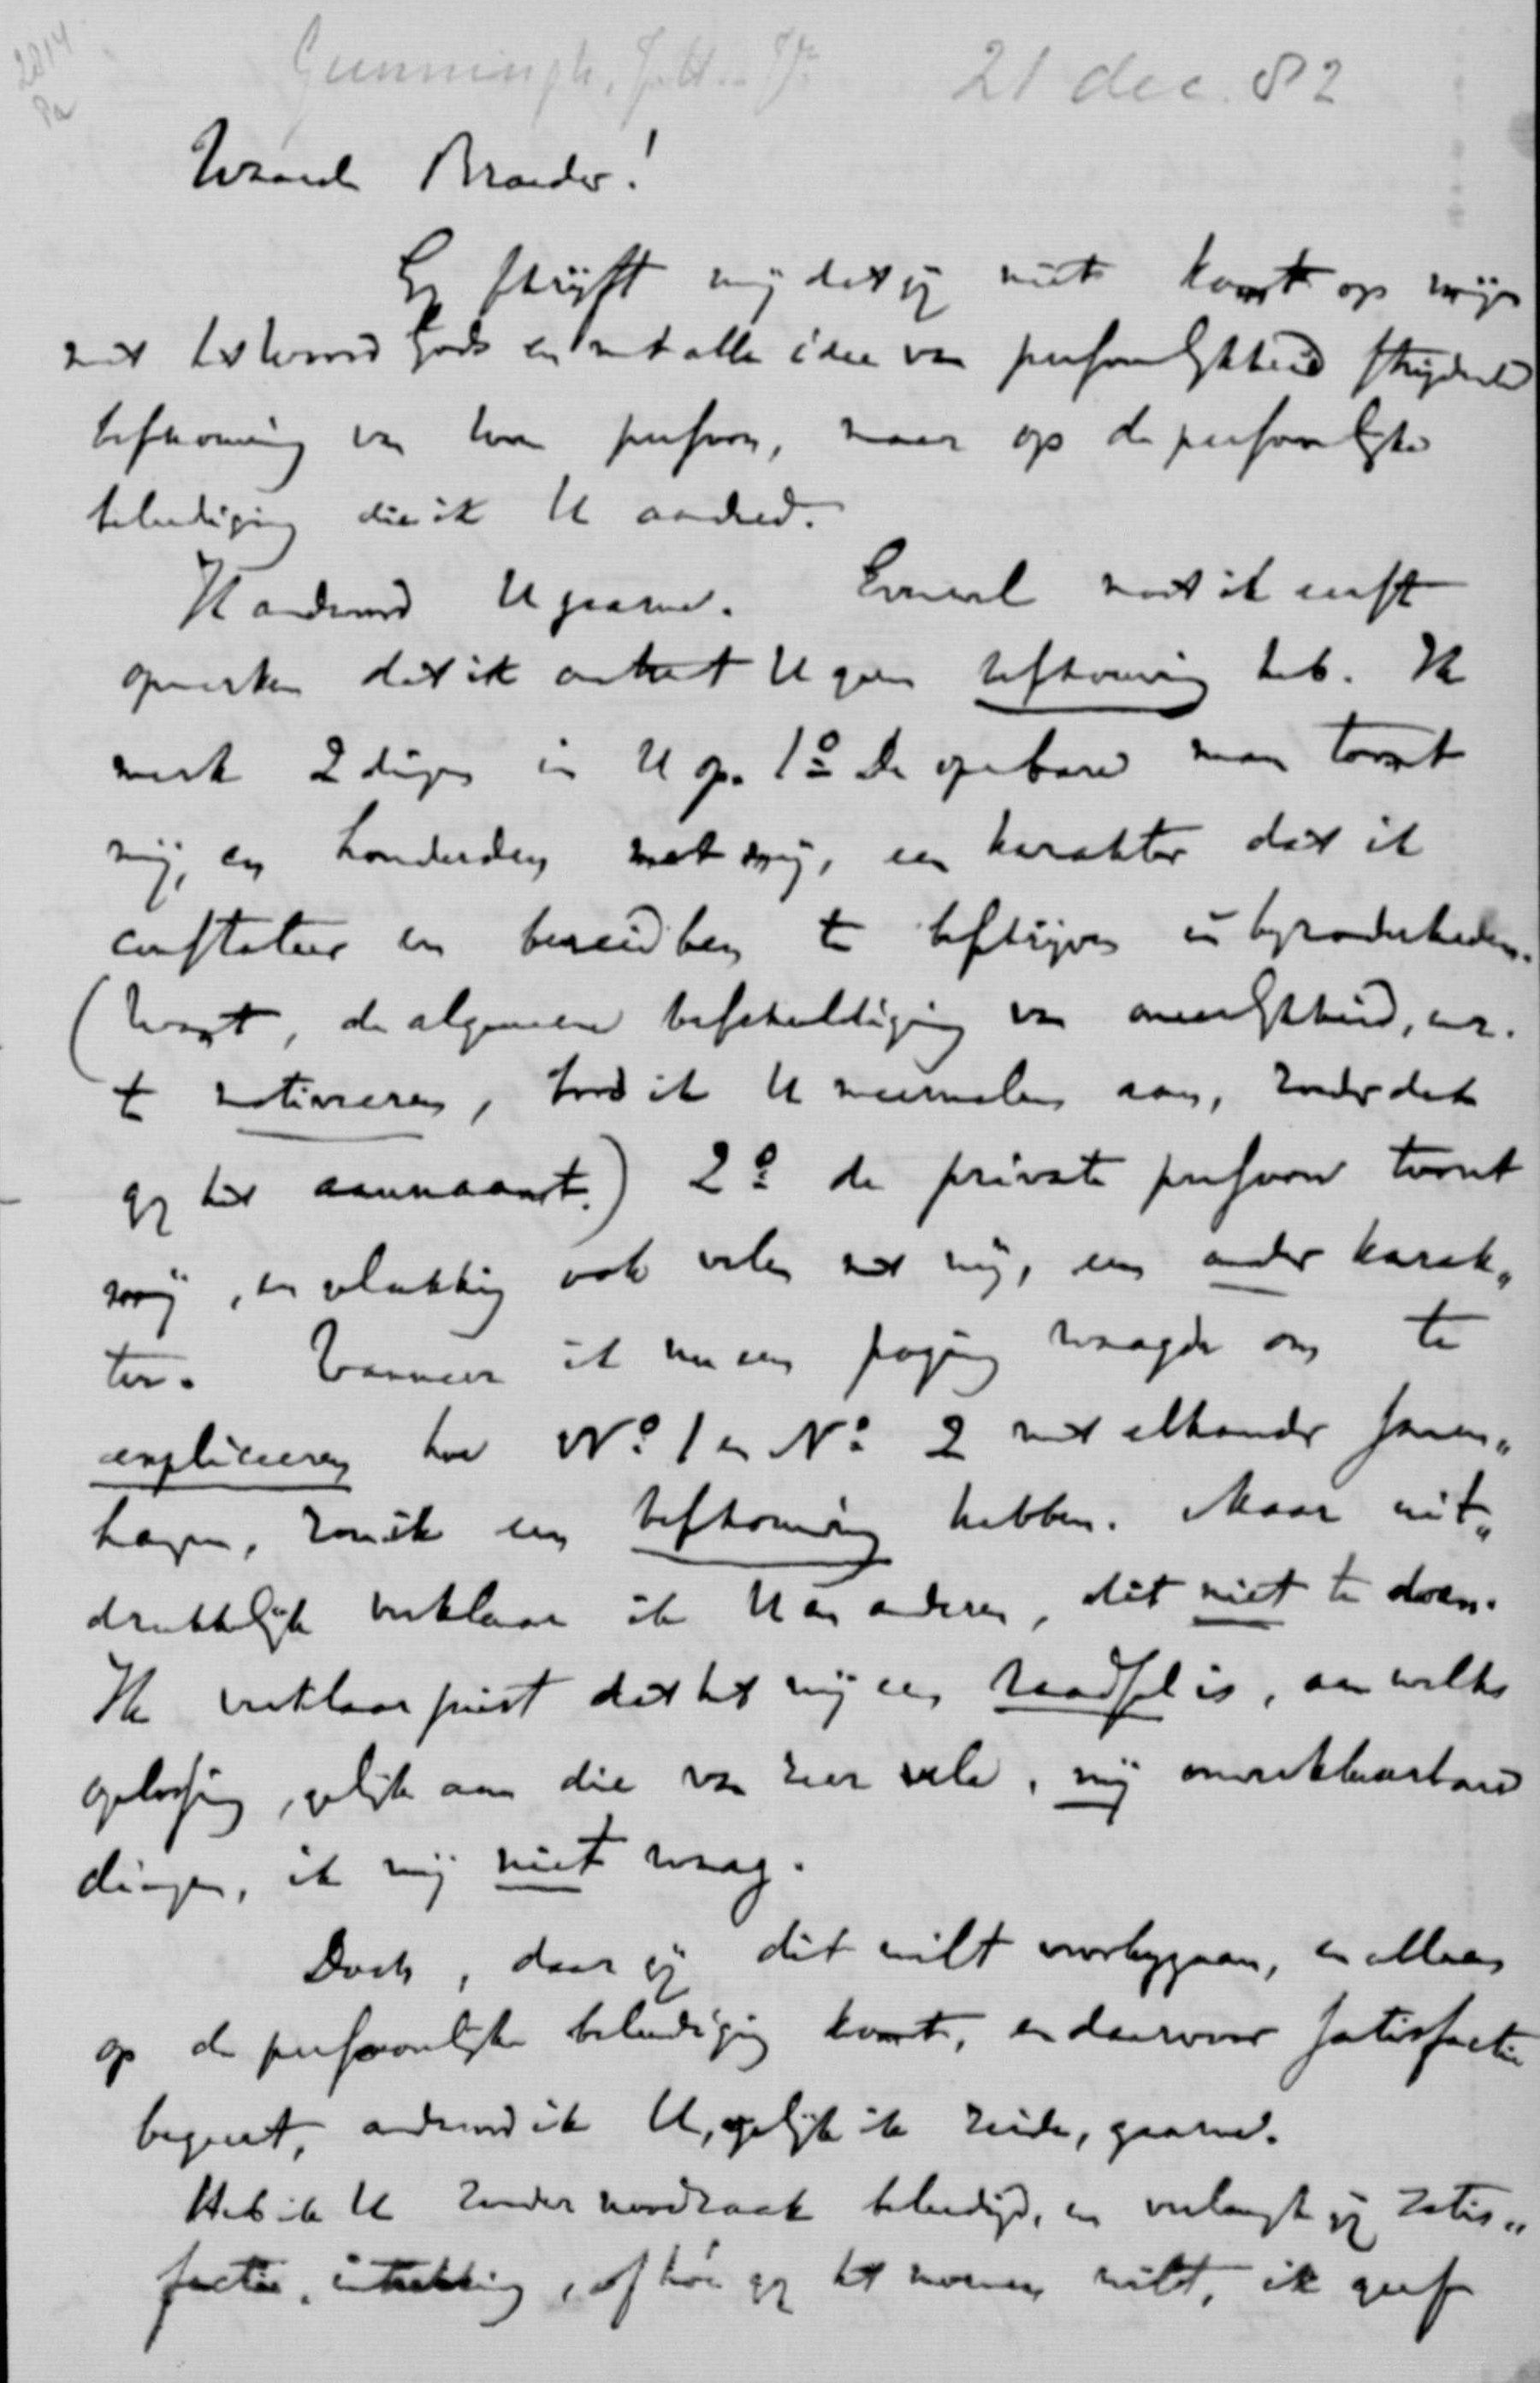 2814
Pa
Gunning jr, J.H. 21 dec. 82
Waarde Broeder!
Gij schrijft mij dat gij niet komt op mijn
met het woord Gods en met alle idee van persoonlijkheid strijdende
beschouwing van Uw persoon, maar op de persoonlijke
beleediging die ik U aandeed.
Ik antwoord U gaarne. Evenwel moet ik eerst
opmerken dat ik omtrent U geen beschouwing heb. Ik
merk 2 dingen in U op. 1º De openbare man toont
mij, en honderden met mij, een karakter dat ik
constateer en bereid ben te beschrijven in byzonderheden.
(Want, de algemeene beschuldiging van oneerlijkheid, enz.
te motiveeren, bood ik U meermalen aan, zonder dat
gij het aannaamt.) 2º de private persoon toont
mij, en gelukkig ook velen met mij, een ander karak„
ter. Wanneer ik nu een poging waagde om te
expliceeren hoe Nº 1 en Nº 2 met elkander samen„
hangen, zou ik een beschouwing hebben. Maar uit„
drukkelijk verklaar ik U en anderen, dit niet te doen.
Ik verklaar juist dat het mij een raadsel is, aan welks
oplossing, gelijk aan die van zeer vele, mij onverklaarbare
dingen, ik mij niet waag.
Doch, daar gij dit wilt voorbygaan, en alleen
op de persoonlijke beleediging komt, en daarvoor satisfactie
begeert, antwoord ik U, gelijk ik zeide, gaarne.
Heb ik U zonder noodzaak beleedigd, en verlangt gij satis„
factie, intrekking, of hoe gij het noemen wilt, ik geef